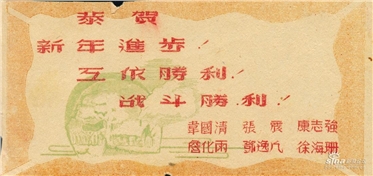 恭賀
新年進步！
互依勝利！
战斗勝利！
韋國清 張震 康志強
鄧逸凡 徐海珊
sina